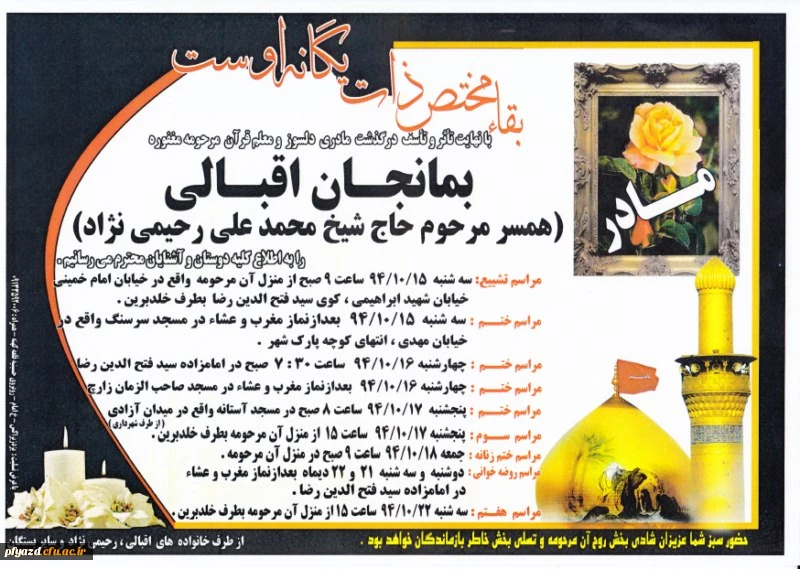 بقاء مختص ذات یگانه اوست
با نهایت تأثر و تأسف درگذشت مادری دلسوز و معلم قرآن مرحومه مغفوره
بمانجان اقبالی
(همسر مرحوم حاج شیخ محمد علی رحیمی نژاد)
را به اطلاع کلیه دوستان و آشنایان محترم می رسانیم.
مادر
مراسم تشییع: سه شنبه ۹۴/۱۰/۱۵ ساعت ۹ صبح از منزل آن مرحومه واقع در خیابان امام خمینی
خیابان شهید ابراهیمی ، کوی سید فتح الدین رضا بطرف خلدبرین .
مراسم ختم : سه شنبه ۹۴/۱۰/۱۵ بعدازنماز مغرب و عشاء در مسجد سرسنگ واقع در
خیابان مهدی ، انتهای کوچه پارک شهر .
مراسم ختم : چهارشنبه ۹۴/۱۰/۱۶ ساعت ۷:۳۰ صبح در امامزاده سید فتح الدین رضا
مراسم ختم : چهارشنبه ۹۴/۱۰/۱۶ بعدازنماز مغرب و عشاء در مسجد صاحب الزمان زارچ
مراسم ختم : پنجشنبه ۹۴/۱۰/۱۷ ساعت ۸ صبح در مسجد آستانه واقع در میدان آزادی
(از طرف شهرداری)
مراسم سوم : پنجشنبه ۹۴/۱۰/۱۷ ساعت ۱۵ از منزل آن مرحومه بطرف خلدبرین.
مراسم ختم زنانه : جمعه ۹۴/۱۰/۱۸ ساعت ۹ صبح در منزل آن مرحومه .
مراسم روضه خوانی : دوشنبه و سه شنبه ۲۱ و ۲۲ دیماه بعدازنماز مغرب و عشاء
در امامزاده سید فتح الدین رضا .
مراسم هفتم : سه شنبه ۹۴/۱۰/۲۲ ساعت ۱۵ از منزل آن مرحومه بطرف خلدبرین.
حضور سبز شما عزیزان شادی بخش روح آن مرحومه و تسلی بخش خاطر بازماندگان خواهد بود .
از طرف خانواده های اقبالی ، رحیمی نژاد و سایر بستگان
pfyazd.cfu.ac.ir